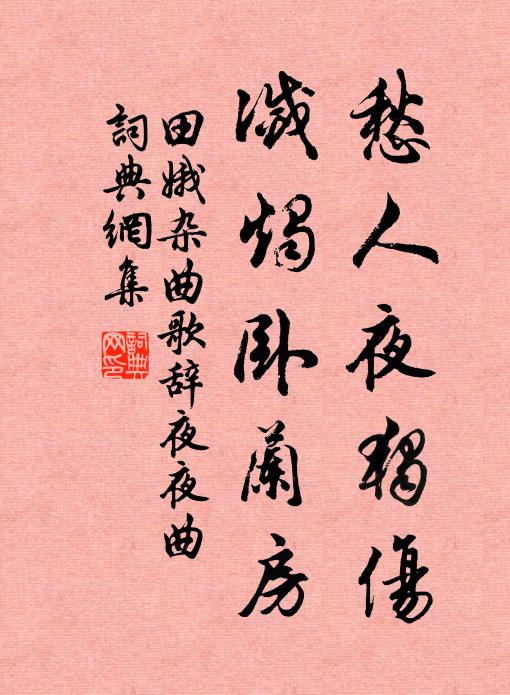 愁人夜獨傷
滅燭臥蘭房
田娥杂曲歌辞夜夜曲
詞典網集
詞典网印